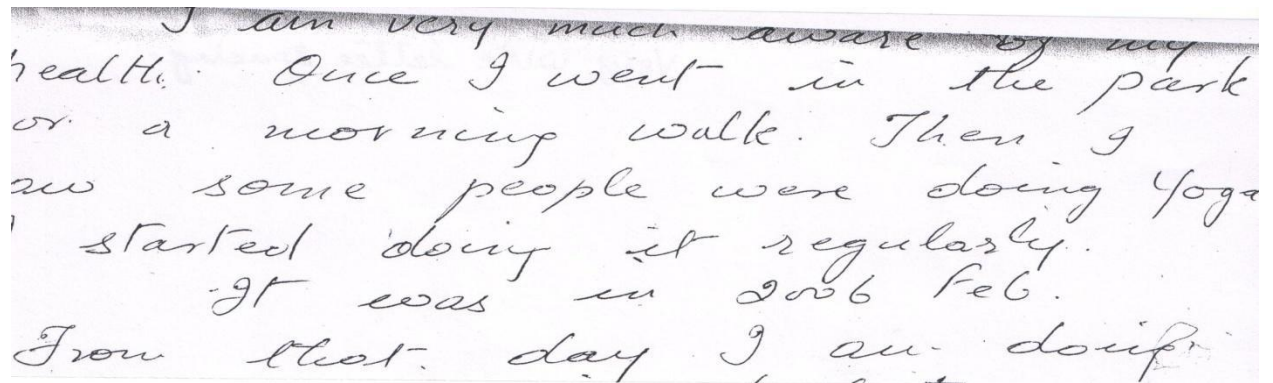 I am very much aware of my
health. Once I went in the park
or a morning walk. Then I
aw some people were doing Yoga
I started doing it regularly.
It was in 2006 Feb.
From that day I am doing